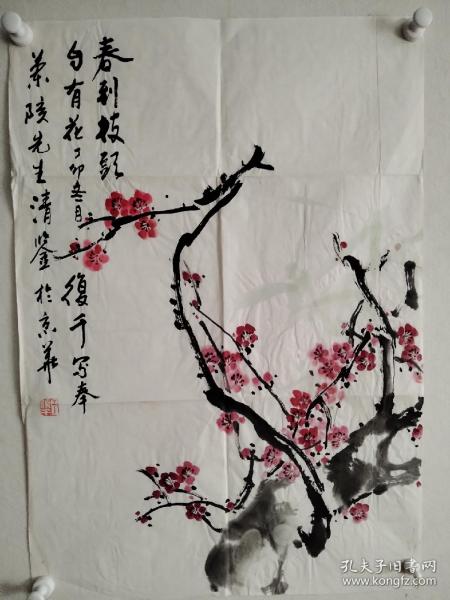 春到枝头
自有花丁卯冬月復千写奉
兰陵先生清鉴於京華
孔夫子旧书网
www.kongfz.com